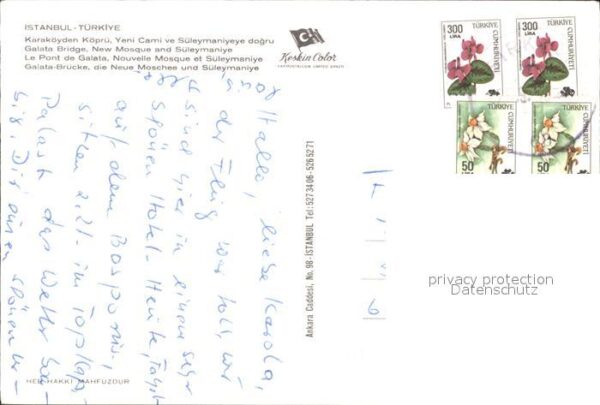 ISTANBUL - TÜRKİYE
Karaköyden Köprü, Yeni Cami ve Süleymaniyeye doğru
Galata Bridge, New Mosque and Süleymaniye
Le Pont de Galata, Nouvelle Mosque et Süleymaniye
Galata-Brücke, die Neue Moschee und Süleymaniye
Keskin Color
300
LIRA
TÜRKİYE
CUMHURİYETİ
300
LIRA
TÜRKİYE
CUMHURİYETİ
50
LIRA
TÜRKİYE
CUMHURİYETİ
50
LIRA
TÜRKİYE
CUMHURİYETİ
Hallo, liebe Karola,
der Flug war toll, wir
sind hier in einem sehr
schönen Hotel. Heute,
auf dem Bosporus,
sitzen z.Zt. im Topkapi
Palast das Wetter
Ankara Caddesi, No. 98 - İSTANBUL Tel: 527 34 06 - 526 52 71
privacy protection
Datenschutz
HER HAKKI MAHFUZDUR